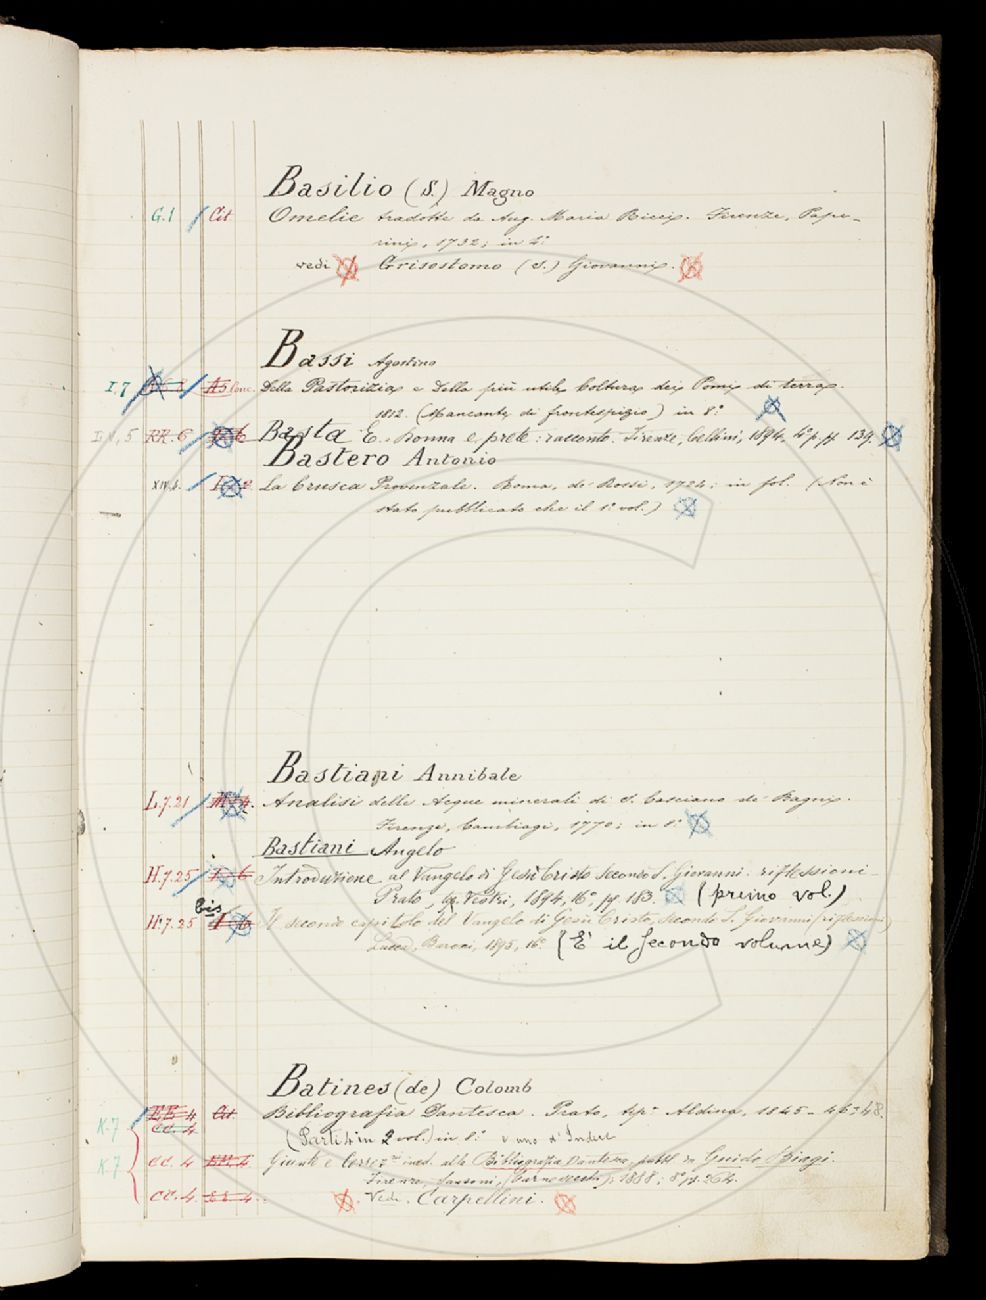 Basilio (S.) Magno
G.1 Cit Omelie tradotte da Aug. Maria Ricci. Firenze, Pape-
rini, 1732; in 4.°
vedi Grisostomo (S.) Giovanni.
Bassi Agostino
I.7 A5 Della Pastorizia e Della più utile Coltura dei Pomi di terra.
1812. (Mancante di frontespizio) in 8.°
5 RR.6 Basta E. Donna e prete: racconto. Firenze, Cellini, 1894, pp. 139.
Bastero Antonio
La Crusca Provenzale. Roma, de Rossi, 1724; in fol. (Non è
stato pubblicato che il 1.° vol.)
Bastiani Annibale
L.7.21 Analisi delle Acque minerali di S. Casciano de Bagni.
Firenze, Cambiagi, 1770; in 8.°
Bastiani Angelo
H.7.25 Introduzione al Vangelo di Gesù Cristo secondo S. Giovanni. riflessioni
Prato, Vestri, 1894, 16.°, pp. 183. (primo vol.)
bis
H.7.25 Il secondo capitolo del Vangelo di Gesù Cristo, secondo S. Giovanni (riflessioni)
Lucca, Baroni, 1895, 16.° (È il secondo volume)
Batines (de) Colomb
EE 4 Cit Bibliografia Dantesca. Prato, tip.ª Aldina, 1845-46-48
K.7 CC.4 (Parti 4 in 2 vol.) in 8.° e uno d'Indici
K.7 CC.4 EE.4 Giunte e Correz.ni ined. alla Bibliografia Dantesca, pubbl. da Guido Biagi.
Firenze, Sansoni, 1888; 8.° pp. 264.
CC.4 EE.4 Vedi. Carpellini.